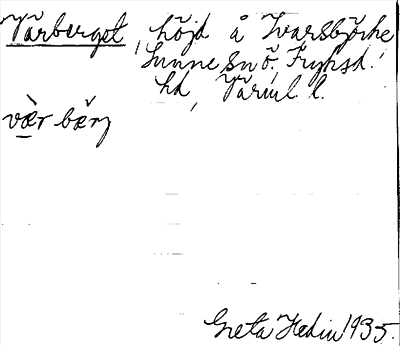 Vårberget, höjd å Ivarsbjörke
Sunne sn ö. Fryksd.
hd, Värml l.
vær bærj
Greta Hedin 1935.